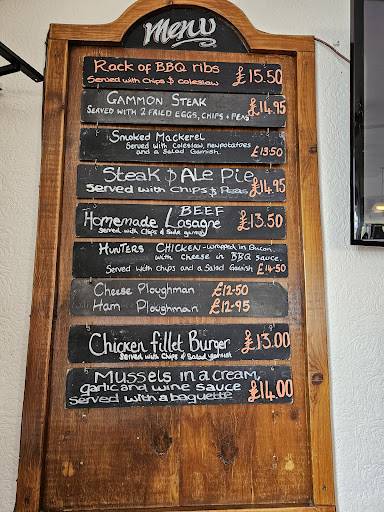 Menu
Rack of BBQ ribs
Served with Chips & coleslaw £15.50
Gammon Steak
Served with 2 fried eggs, chips + peas £14.95
Smoked Mackerel
Served with Coleslaw, new potatoes
and a Salad Garnish. £13.50
Steak & Ale Pie
Served with Chips & Peas £14.95
BEEF
Homemade Lasagne £13.50
Served with Chips & Side garnish
Hunters Chicken - wrapped in Bacon
with cheese in BBQ sauce.
Served with Chips and a Salad Garnish £14.50
Cheese Ploughman £12.50
Ham Ploughman £12.95
Chicken fillet Burger £13.00
Served with Chips & Salad garnish
Mussels in a cream,
garlic and wine sauce
Served with a baguette £14.00